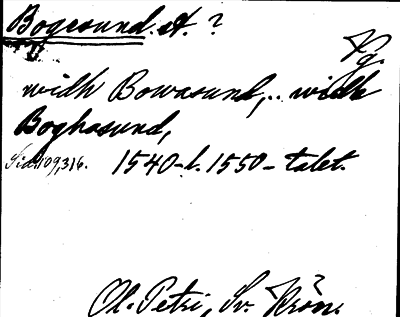 Bogesund. st. ?
Vg.
widh Bowasund,.. widh
Boghasund,
Sid. 109, 316. 1540-t. 1550-talet.
Ol. Petri, Sv. Krön.